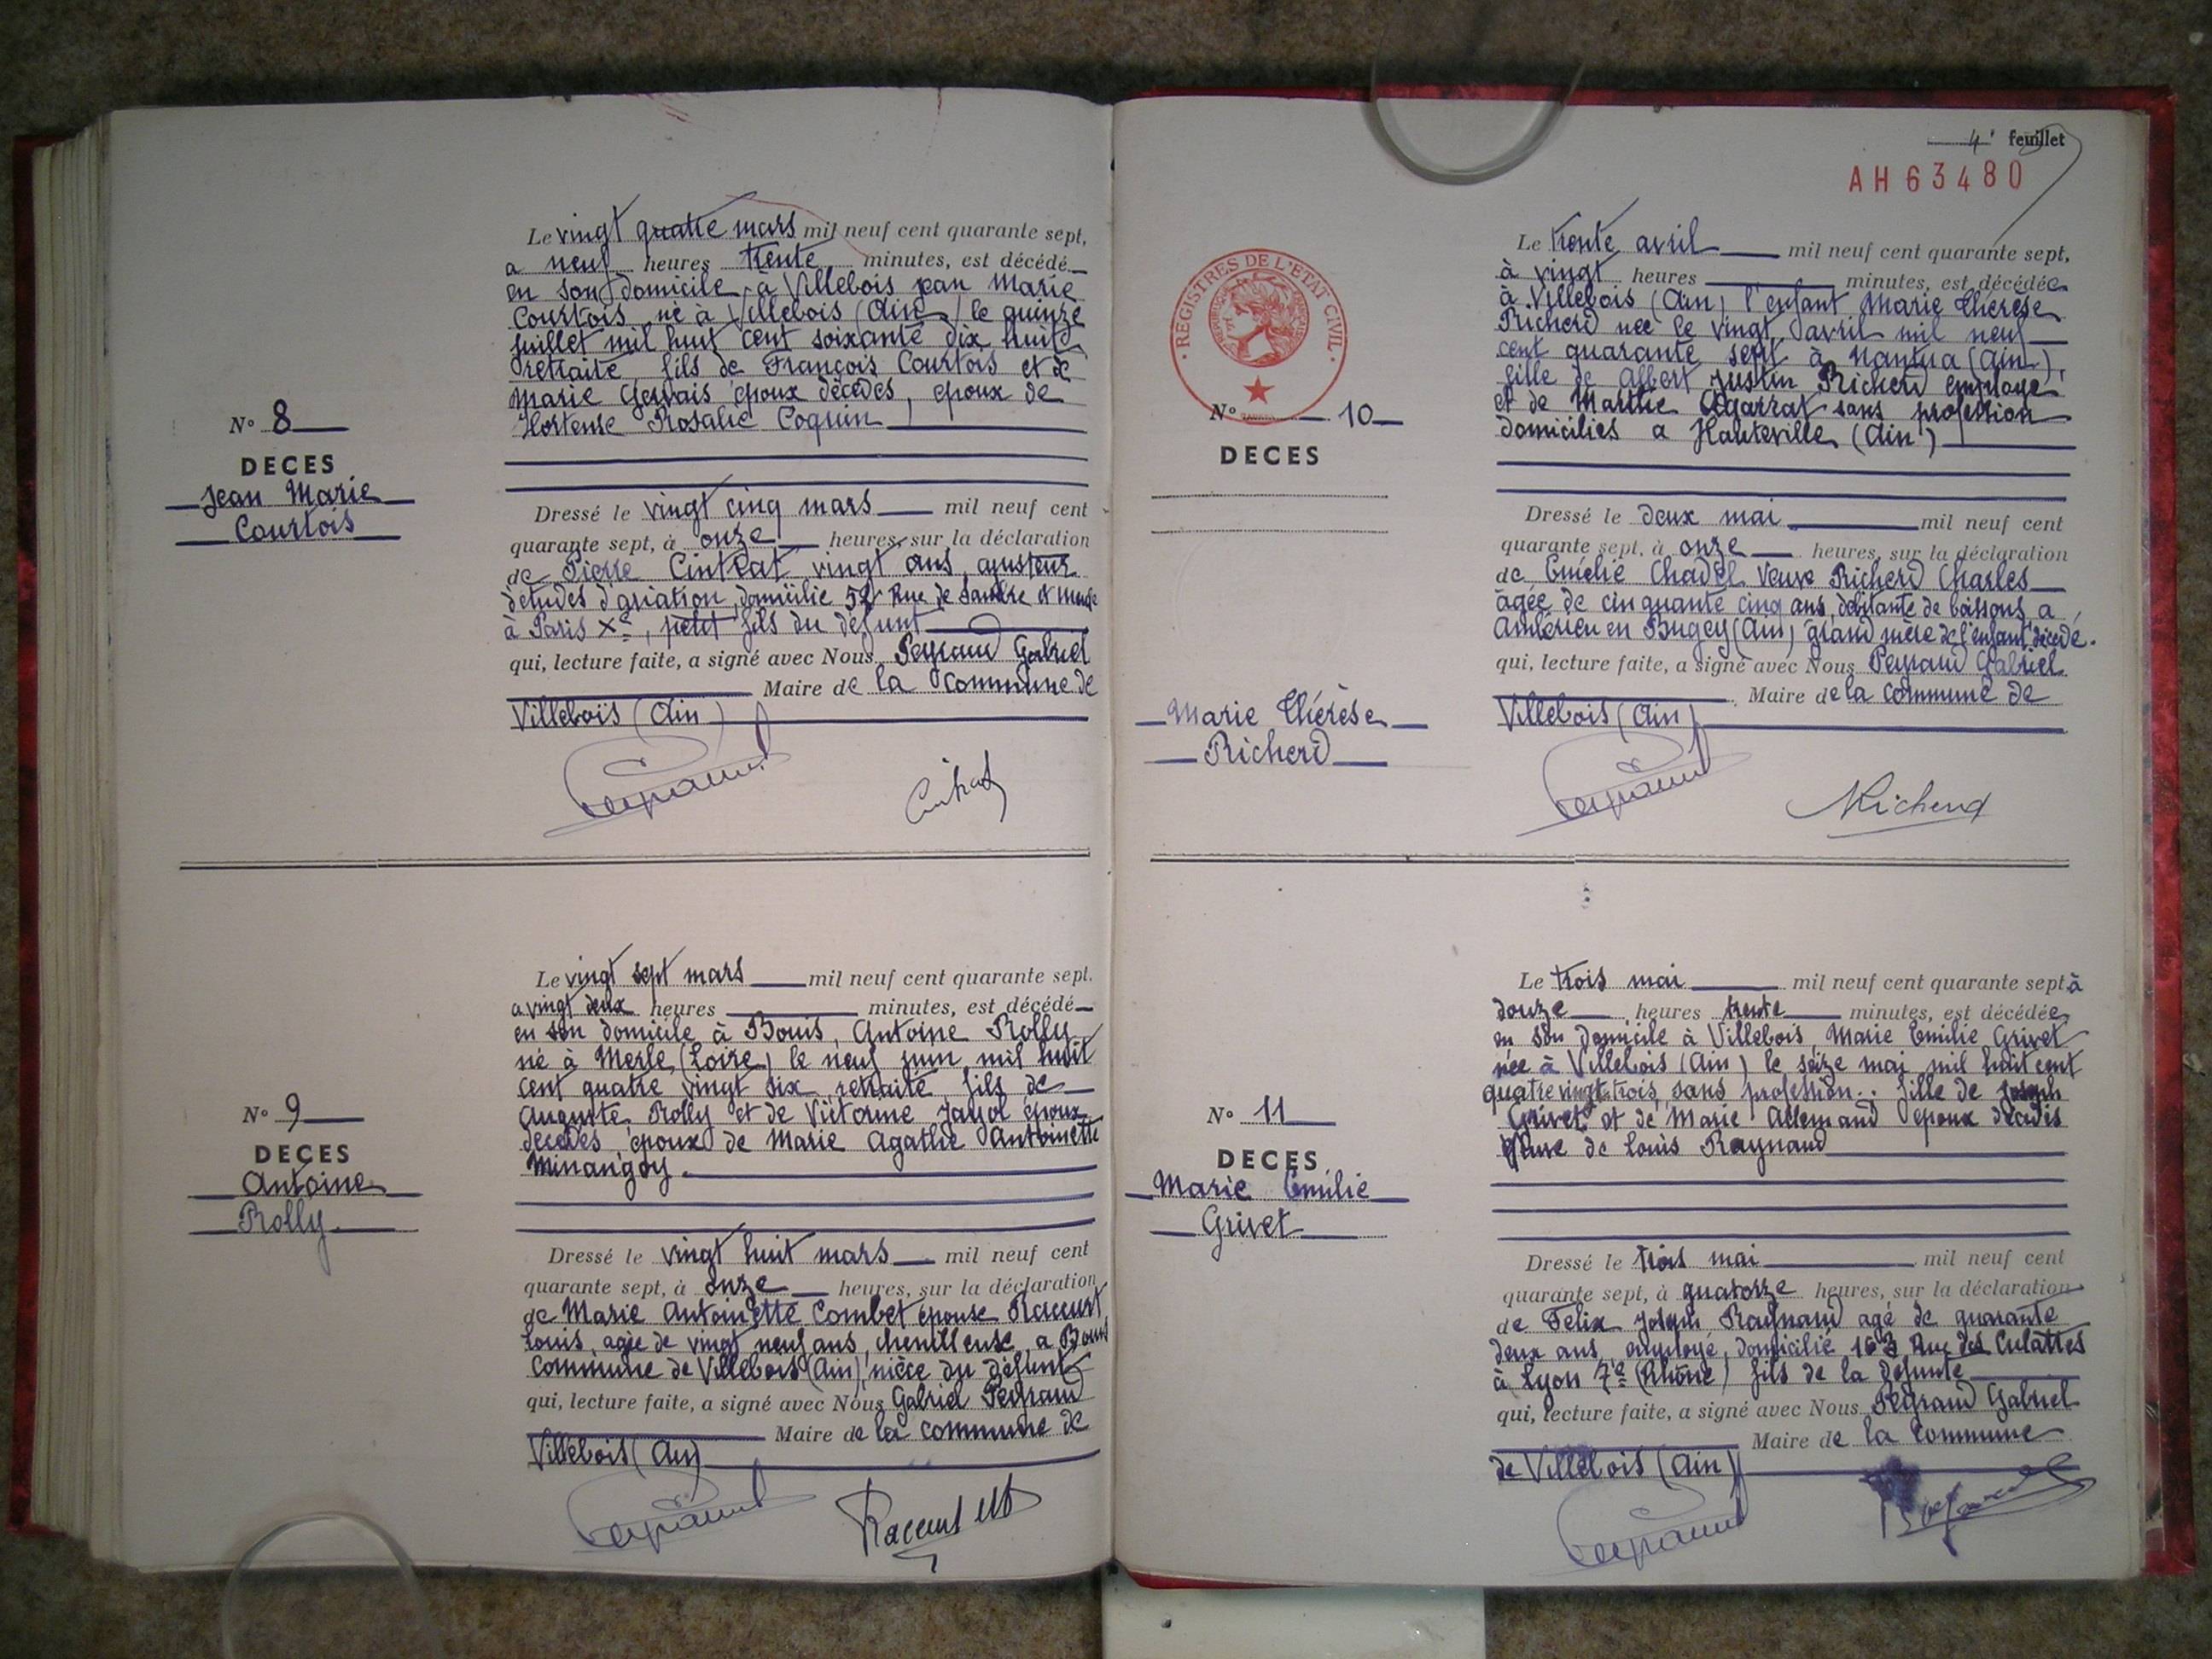 Le vingt quatre mars mil neuf cent quarante sept,
a neuf heures trente minutes, est décédé
en son domicile, à Villebois Jean Marie
Courtois né à Villebois (Ain) le quinze
juillet mil huit cent soixante dix huit
retraité fils de François Courtois et de
Marie Gervais époux décédés, époux de
Hortense Rosalie Coquin
N° 8
DECES
Jean Marie
Courtois
Dressé le vingt cinq mars mil neuf cent
quarante sept, à onze heures, sur la déclaration
de Pierre Cintrat vingt ans, ajusteur
d'études d'aviation, domicilié 52 Rue de
à Paris Xe, petit fils du défunt
qui, lecture faite, a signé avec Nous Peyraud Gabriel
Maire de la Commune de
Villebois (Ain)
Cintrat
Le vingt sept mars mil neuf cent quarante sept.
a vingt deux heures minutes, est décédé
en son domicile à Bouis, Antoine Rolly
né à Merle (Loire) le neuf juin mil huit
cent quatre vingt six retraité fils de
Auguste Rolly et de Victorine Jayol époux
décédés époux de Marie Agathe Antoinette
Minangoy.
N° 9
DECES
Antoine
Rolly.
Dressé le vingt huit mars mil neuf cent
quarante sept, à onze heures, sur la déclaration
de Marie Antoinette Combet épouse Raccurt
Louis, agée de vingt neuf ans, chenilleuse, a Bouis
Commune de Villebois (Ain), nièce du défunt
qui, lecture faite, a signé avec Nous Gabriel Peyraud
Maire de la commune de
Villebois (Ain)
Raccurt
4e feuillet
AH63480
REGISTRES DE L'ETAT CIVIL
Le trente avril mil neuf cent quarante sept,
à vingt heures minutes, est décédée
à Villebois (Ain) l'enfant Marie Thérèse
Richerd née le vingt avril mil neuf
cent quarante sept à Nantua (Ain),
fille de Albert Justin Richerd employé
et de Marthe Agarrat sans profession
domiciliés a Hauteville (Ain)
N° 10
DECES
Marie Thérèse
Richerd
Dressé le deux mai mil neuf cent
quarante sept, à onze heures, sur la déclaration
de Emélie Chadel Veuve Richerd Charles
âgée de cinquante cinq ans, débitante de boissons, a
Ambérieu en Bugey (Ain) grand mère de l'enfant décédé.
qui, lecture faite, a signé avec Nous Peyraud Gabriel
Maire de la commune de
Villebois (Ain)
Richerd
Le trois mai mil neuf cent quarante sept à
douze heures trente minutes, est décédée
en son domicile à Villebois, Marie Emilie Grivet
née à Villebois (Ain) le seize mai mil huit cent
quatre vingt trois, sans profession.. fille de Joseph
Grivet et de Marie Allemand époux décédés
Veuve de Louis Raynaud
N° 11
DECES
Marie Emilie
Grivet
Dressé le trois mai mil neuf cent
quarante sept, à quatorze heures, sur la déclaration
de Felix Joseph Raynaud agé de quarante
deux ans, employé, domicilié 163 Rue des Culattes
à Lyon 7e (Rhône) fils de la défunte
qui, lecture faite, a signé avec Nous Peyraud Gabriel
Maire de la Commune
de Villebois (Ain)